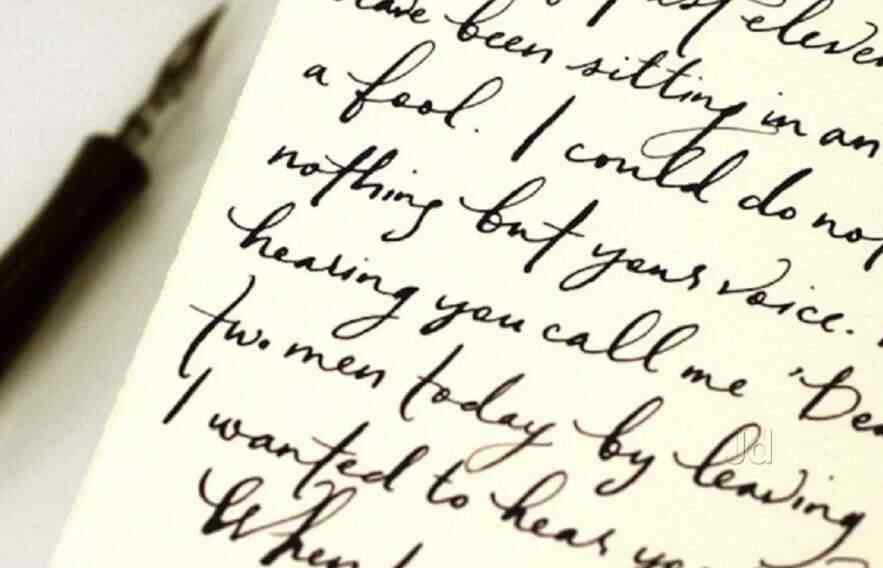 been sitting in an
a fool. I could do
nothing but your voice.
hearing you call me "Dea
two men today by leaving
I wanted to hear
When I
Jd